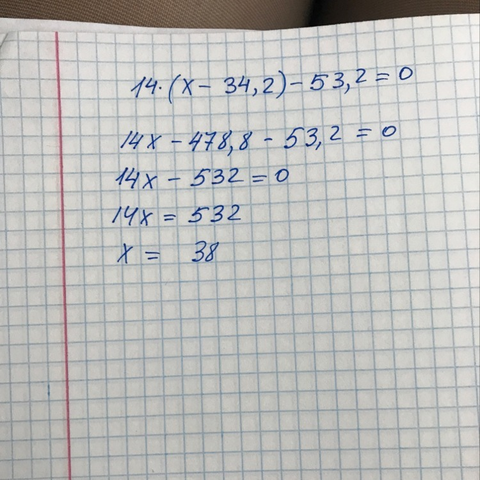 14·(x - 34,2) - 53,2 = 0
14x - 478,8 - 53,2 = 0
14x - 532 = 0
14x = 532
x = 38